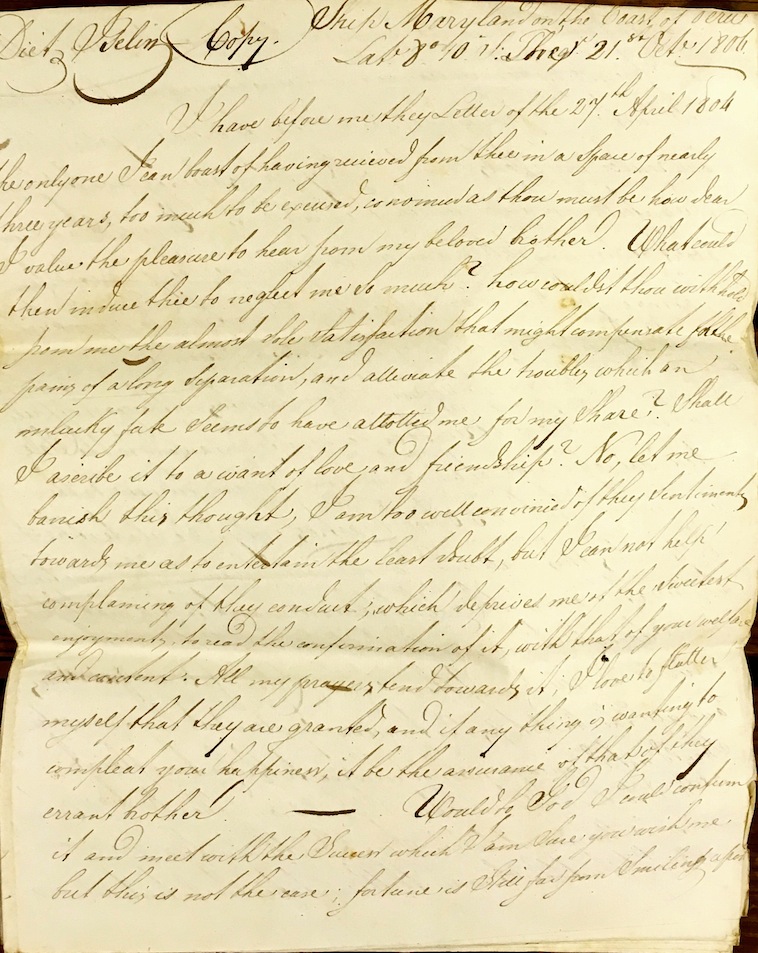 Diet Belin Copy. Ship Maryland on the Coast of Peru
Lat 8° 10 S. 21st Octr 1806
I have before me they Letter of the 27th April 1804
the only one I can boast of having recieved from thee in a Space of nearly
three years, too much to be excused, convinced as thou must be how dear
I value the pleasure to hear from my beloved brother. What could
then induce thee to neglect me so much? how couldst thou withhold
from me the almost sole satisfaction that might compensate for the
pains of a long separation, and alleviate the troubles which an
unlucky fate seems to have allotted me for my Share? Shall
I ascribe it to a want of love and friendship? No, let me
banish this thought, I am too well convinced of they Sentiments
towards me as to entertain the least doubt, but I can not help
complaining of they conduct, which deprives me of the sweetest
enjoyment, to read the confirmation of it, with that of your welfare
and content. All my prayers tend towards it; I love to flatter
myself that they are granted, and if any thing is wanting to
compleat your happiness, it be the assurance of that of they
errant brother. — Would to God I could confirm
it and meet with the Success which I am Sure you wish me
but this is not the case; fortune is still far from Smiling upon